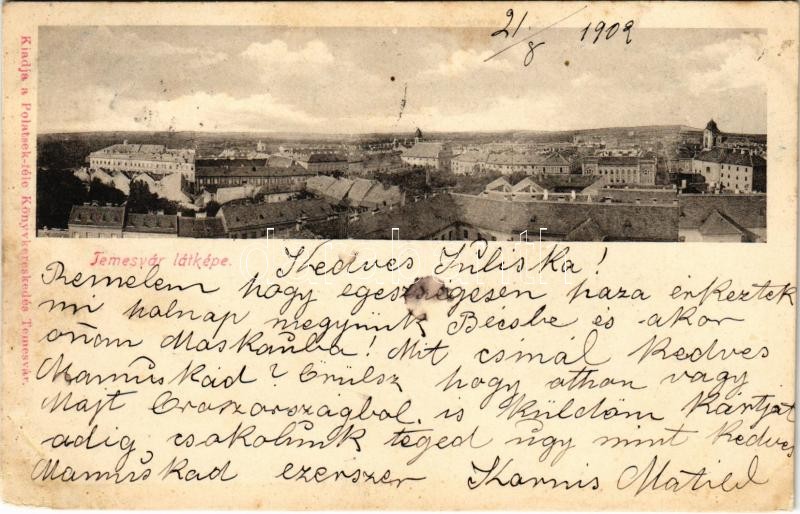 21/8 1902
Kiadja a Polatsek-féle Könyvkereskedés Temesvár.
Temesvár látképe.
Kedves Juliska!
Remelem hogy egeszségesen haza érkeztek
mi holnap megyünk Becsbe és akor
onan Moskauba! Mit csinál kedves
Mamuskád? Örülsz hogy othon vagy
Majt Oroszországbol is küldöm kártját
adig csokolunk téged ugy mint kedves
Mamuskad ezerszer Karnis Matild